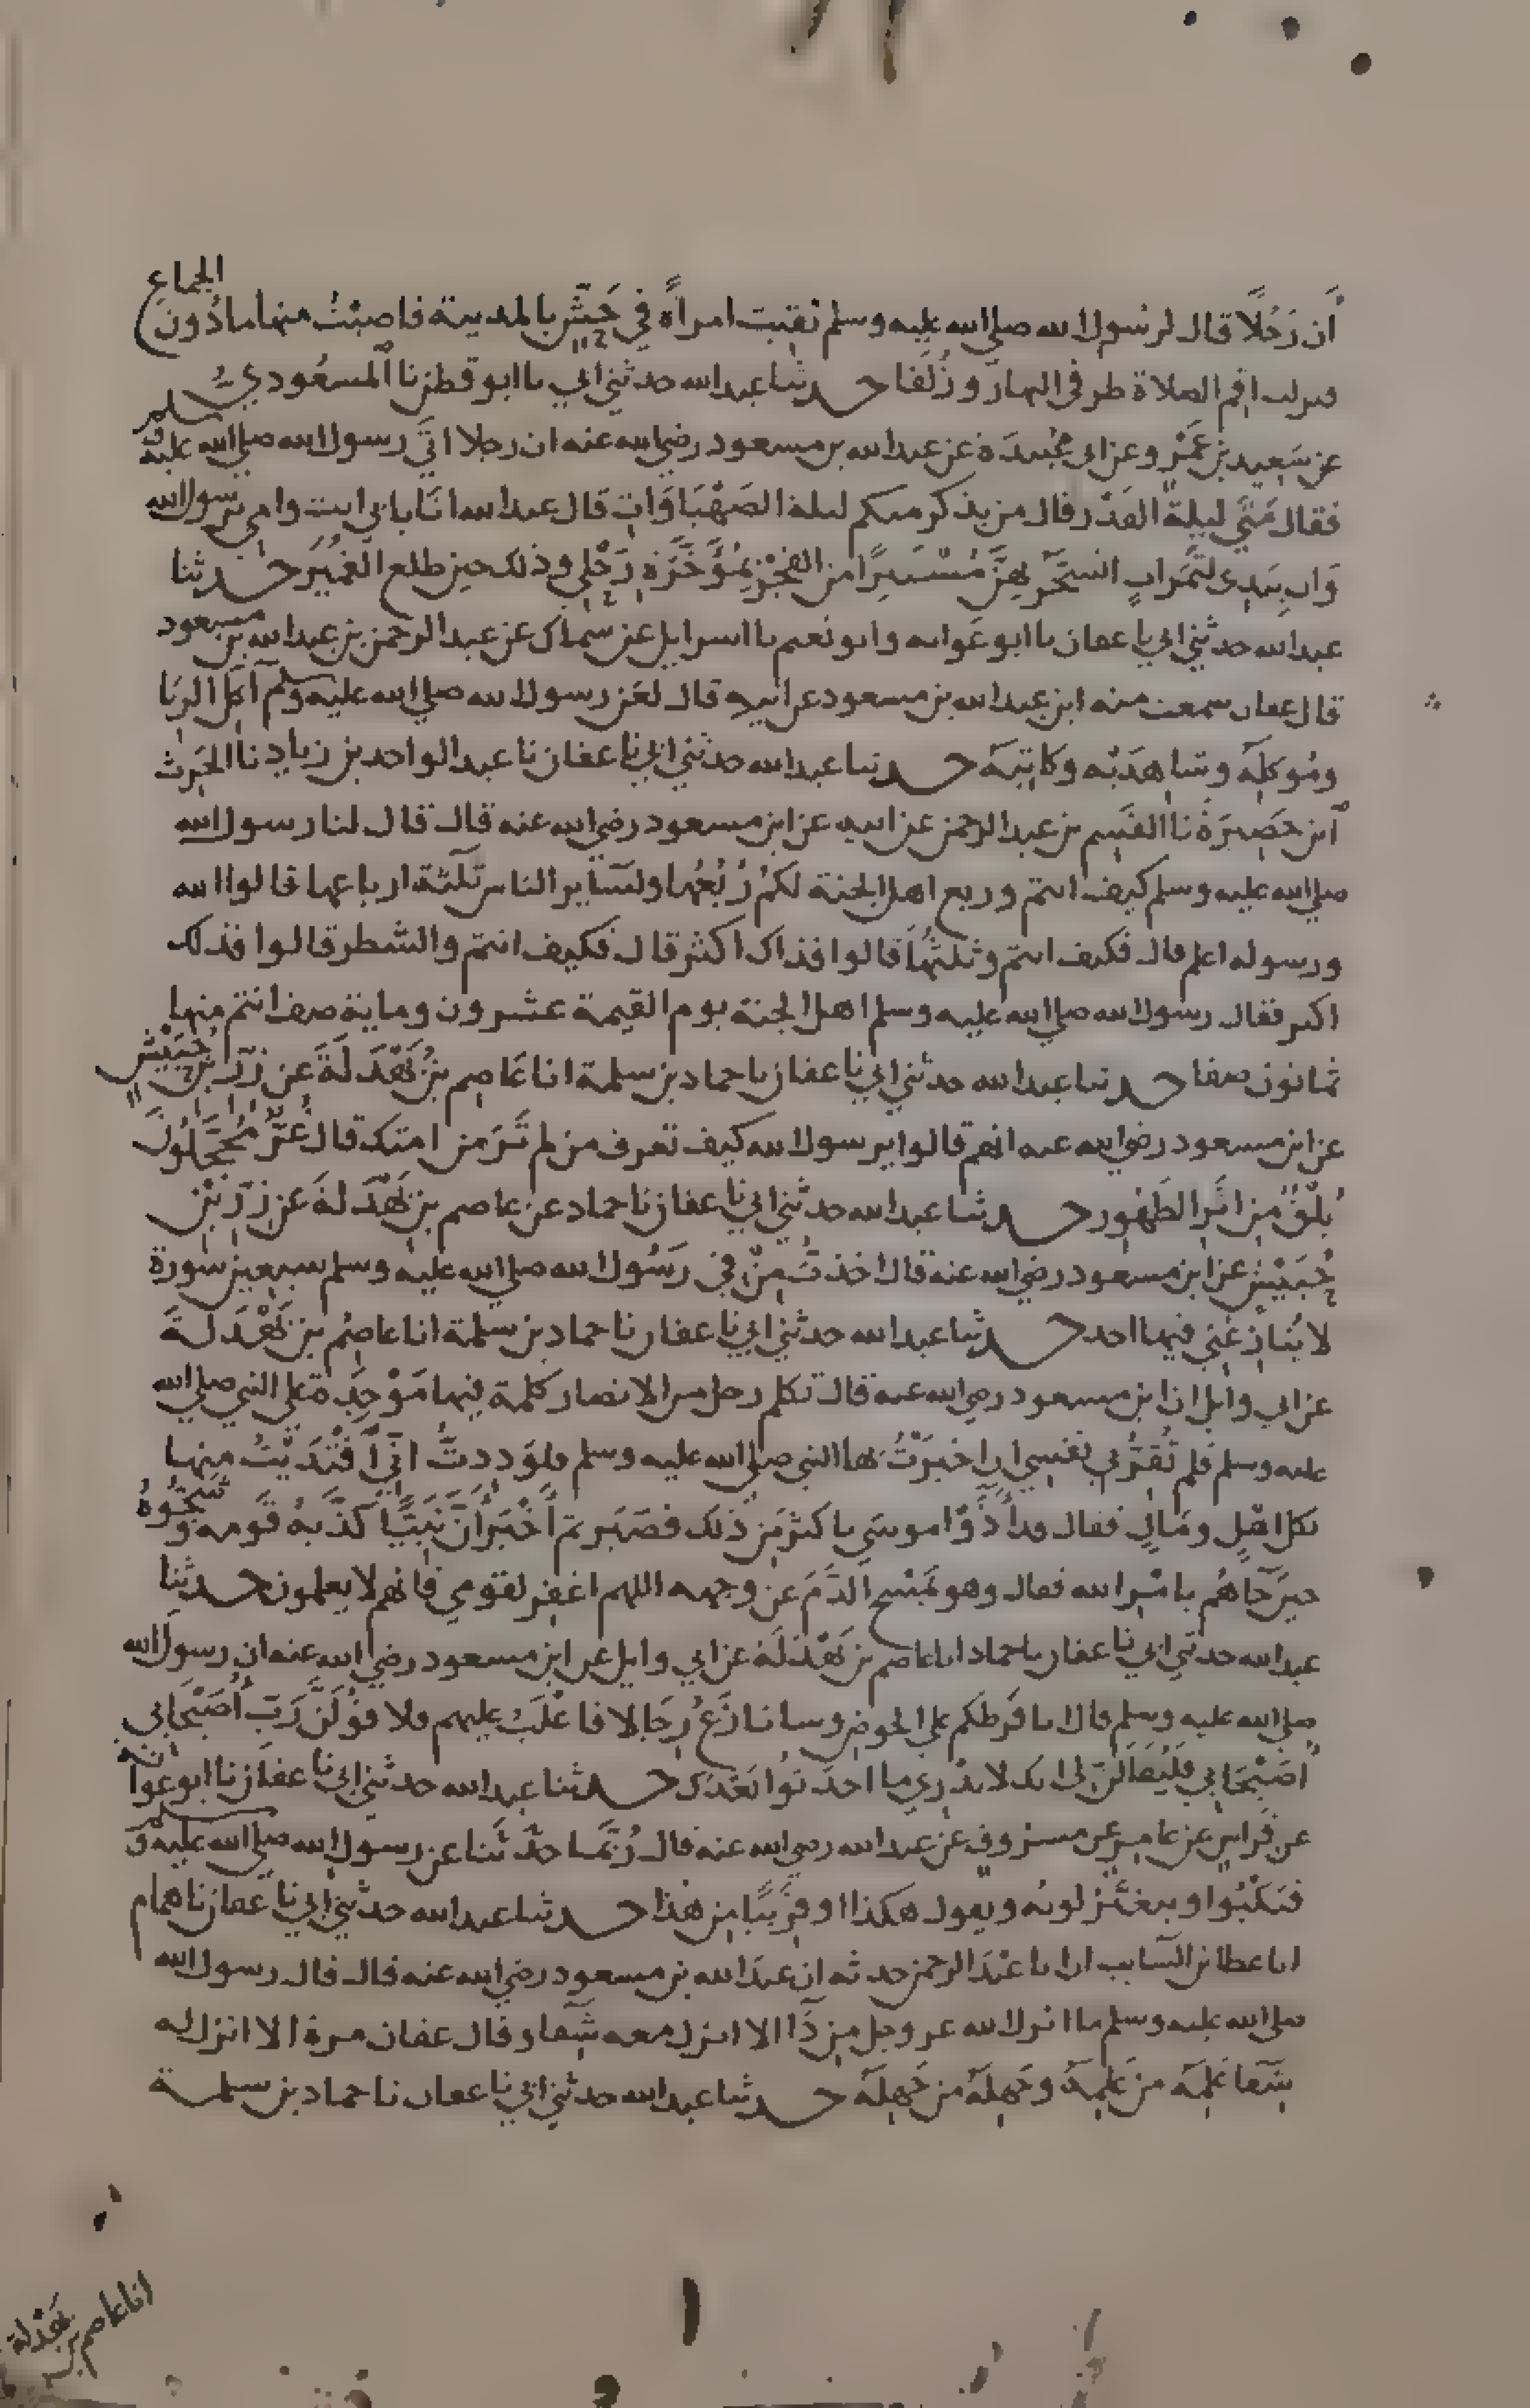 أن رَجُلًا قال لرسول الله صلى الله عليه وسلم لقيت امرأةً في حَشٍّ بالمدينة فاصبْتُ منها مادُونَ الجماع
فنزلت اقم الصلاة طرفى النهار وزُلَفا حدثنا عبد الله حدثني ابي نا ابو قطن نا المسعُودي
عن سَعِيد بن عَمْرٍو عن ابى عُبيدَة عن عبد الله بن مسعود رضي الله عنه ان رجلا اتَى رسول الله صلى الله عليه وسلم
فقال مَتَى ليلة القَدْر قال من يذكر منكم ليلة الصَهْبَاوَاتِ قال عبد الله انَا بابي انت وامي يرسول الله
وَان بيَدِى لتَمَراتٍ اتسَحَّر بهِنَّ مُسْتَتِرًا من الفجْر بمُؤَخَّرَةِ رَحْلِي وذلك حين طلع القُمَيْر حدثنا
عبد الله حدثني ابي نا عفان نا ابو عَوانه وابو نعيم نا اسرايل عن سماك عن عبد الرحمن بن عبد الله بن مسعود
قال عفان سمعت منه ابن عبد الله بن مسعود عن ابيه قال لعَن رسول الله صلى الله عليه وسلم آكل الربَا
ومُوكلهُ وشاهدَيْه وكاتِبَهُ حدثنا عبد الله حدثني ابي نا عفان نا عبد الواحد بن زياد نا الحَرث
ابن حَصِيرَة نا القسِم بن عبد الرحمن عن ابيه عن ابن مسعود رضي الله عنه قال قال لنا رسول الله
صلى الله عليه وسلم كيف انتم وربع اهل الجنة لكمْ رُبُعُها ولسَآير الناس ثلثة ارباعها قالوا الله
ورسوله اعلم قال فكيف انتم وثلثُها قالوا فذاك اكثر قال فكيف انتم والشطر قالوا فذلك
اكثر فقال رسول الله صلى الله عليه وسلم اهل الجنة يوم القيمة عشرون وماية صف انتم منها
ثمانون صفا حدثنا عبد الله حدثني ابي نا عفان نا حماد بن سلمة انا عَاصِم بنُ بَهْدَلَةَ عن زِرِّ بنِ حُبَيْشٍ
عن ابن مسعود رضي الله عنه انهم قالوا يرسول الله كيف تعرف من لم تَرَ من امتك قال غُرٌّ مُحَجَّلُونَ
بُلْقٌ مِن اثَر الطَهُورِ حدثنا عبد الله حدثني ابي نا عفان نا حماد عن عاصم بن بَهْدَلةَ عن زِرِّ بْنِ
حُبَيْشٍ عن ابن مسعود رضي الله عنه قال اخذتُ مِنْ في رَسُول الله صلى الله عليه وسلم سبعين سورة
لا يُنازعُني فيها احد حدثنا عبد الله حدثني ابي نا عفان نا حماد بن سلمة انا عاصِم بن بَهْدَلَةَ
عن ابي وايل ان ابن مسعود رضي الله عنه قال تكلم رجل من الانصار كلمة فيها مَوْجِدَة على النبي صلى الله
عليه وسلم فلم تُقِرَّني نفسِي ان اخبَرْتُ بها النبي صلى الله عليه وسلم فلوَدِدتُّ انِّي افْتَدَيْتُ منها
بكل اهْلٍ ومَالٍ فقال قد أَذَوْا موسَى باكثر مِن ذلك فصَبَر ثم أَخْبَرَ أَنَّ نَبِيًّا كَذَّبَهُ قَومه وشَجُّوهُ
حينَ جَآهُم بامْر الله فقال وهو يَمْسَح الدَّمَ عن وجهه اللهم اغفِر لقومي فانهم لا يعلمون حدثنا
عبد الله حدثني ابي نا عفان نا حماد انا عاصم بن بَهْدَلَة عن ابي وايل عن ابن مسعود رضي الله عنه ان رسول الله
صلى الله عليه وسلم قال انا فَرَطكم على الحوض وسانازَعُ رِجَالا فاغْلَبُ عليهم فلاقوُلَنَّ رَبِّ أُصَيْحَابي
أُصَيْحَابي فلَيُقَالَنَّ لى انك لا تدْرِي ما احدَثوُا بَعْدَك حدثنا عبد الله حدثني ابي نا عفان نا ابو عوانه
عن فِرَاسٍ عن عامِرٍ عن مسروق عن عبد الله رضي الله عنه قال رُبَّمَا حدَّثَنا عن رسول الله صلى الله عليه وسلم
فيَكْبُوا ويتغَيَّر لونه ويقول هكذا او قرِيبًا مِن هذا حدثنا عبد الله حدثني ابي نا عفان نا همام
انا عطا بن السَّايب ان ابا عبْدَ الرحمن حدثه ان عبدَ الله بن مسعود رضي الله عنه قال قال رسول الله
صلى الله عليه وسلم ما انزل الله عز وجل مِن دَآ الا انزل معه شِفَا وقال عفان مرة الا انزل له
شِفَا عَلِمَهُ من عَلِمَهُ وجَهِلَهُ من جَهِلَهُ حدثنا عبد الله حدثني ابي نا عفان نا حماد بن سلمة
انا عاصم بن بَهْدَلة